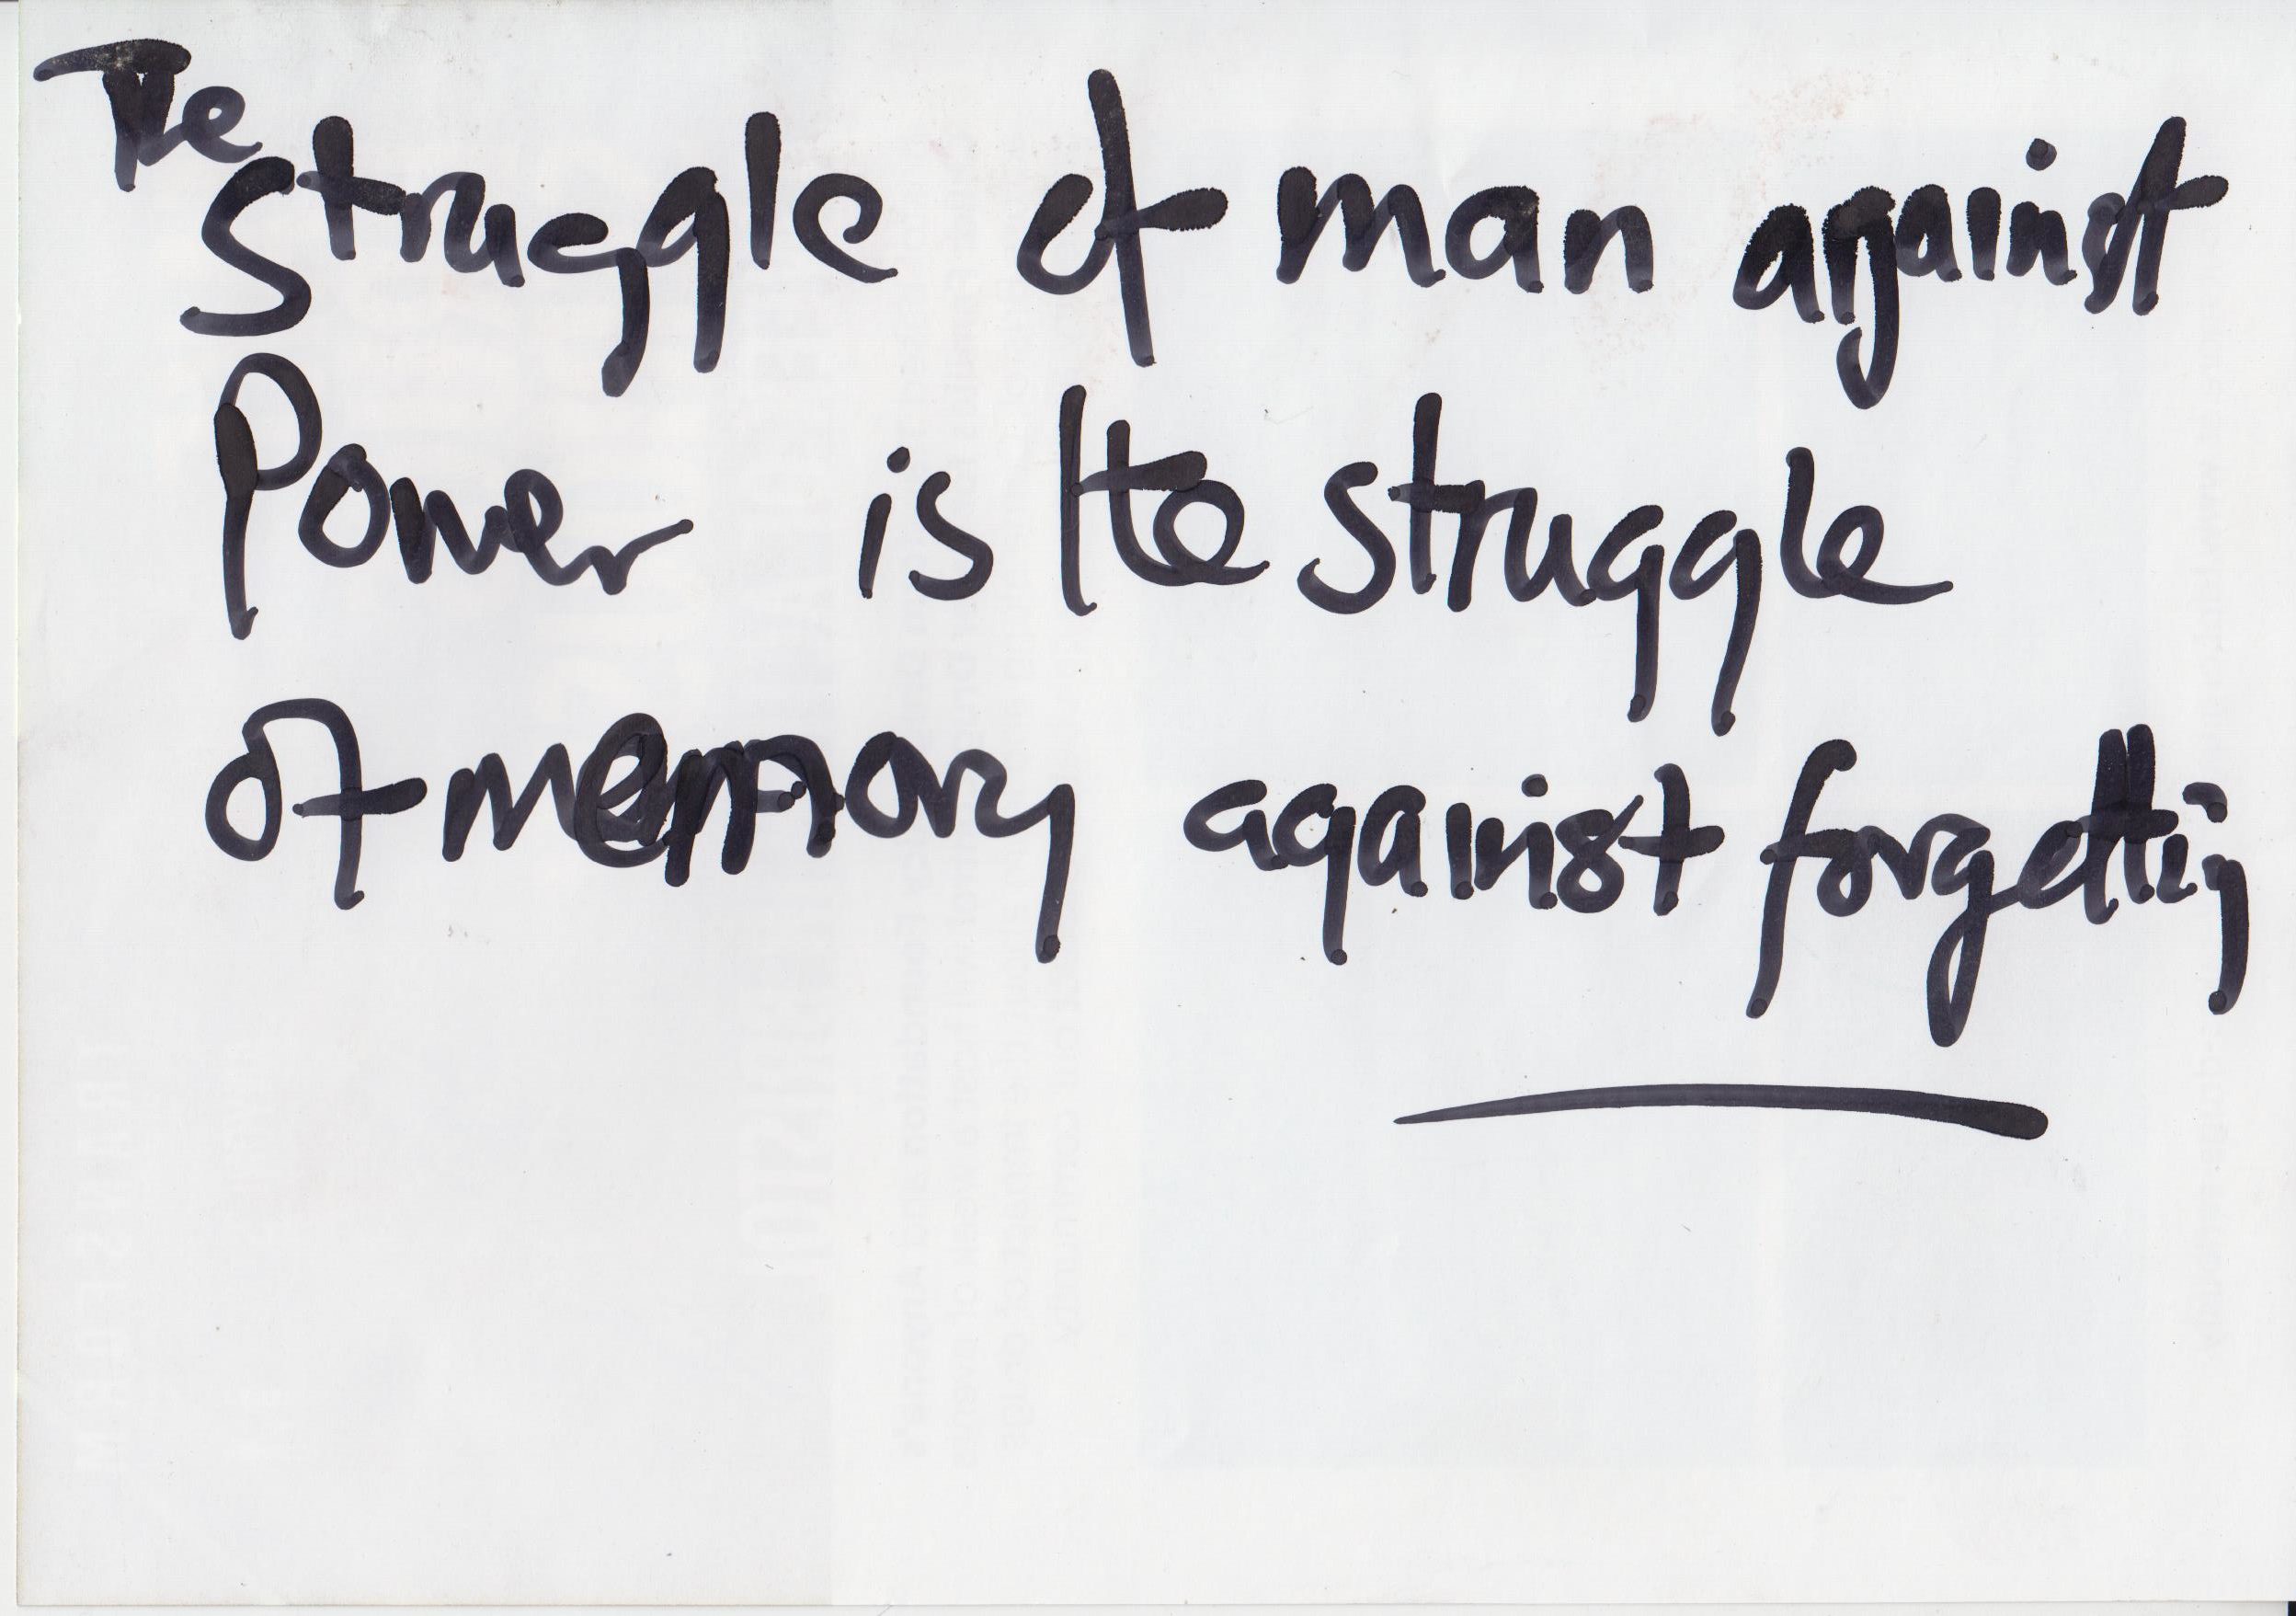 The
struggle of man against
Power is the struggle
of memory against forgetting